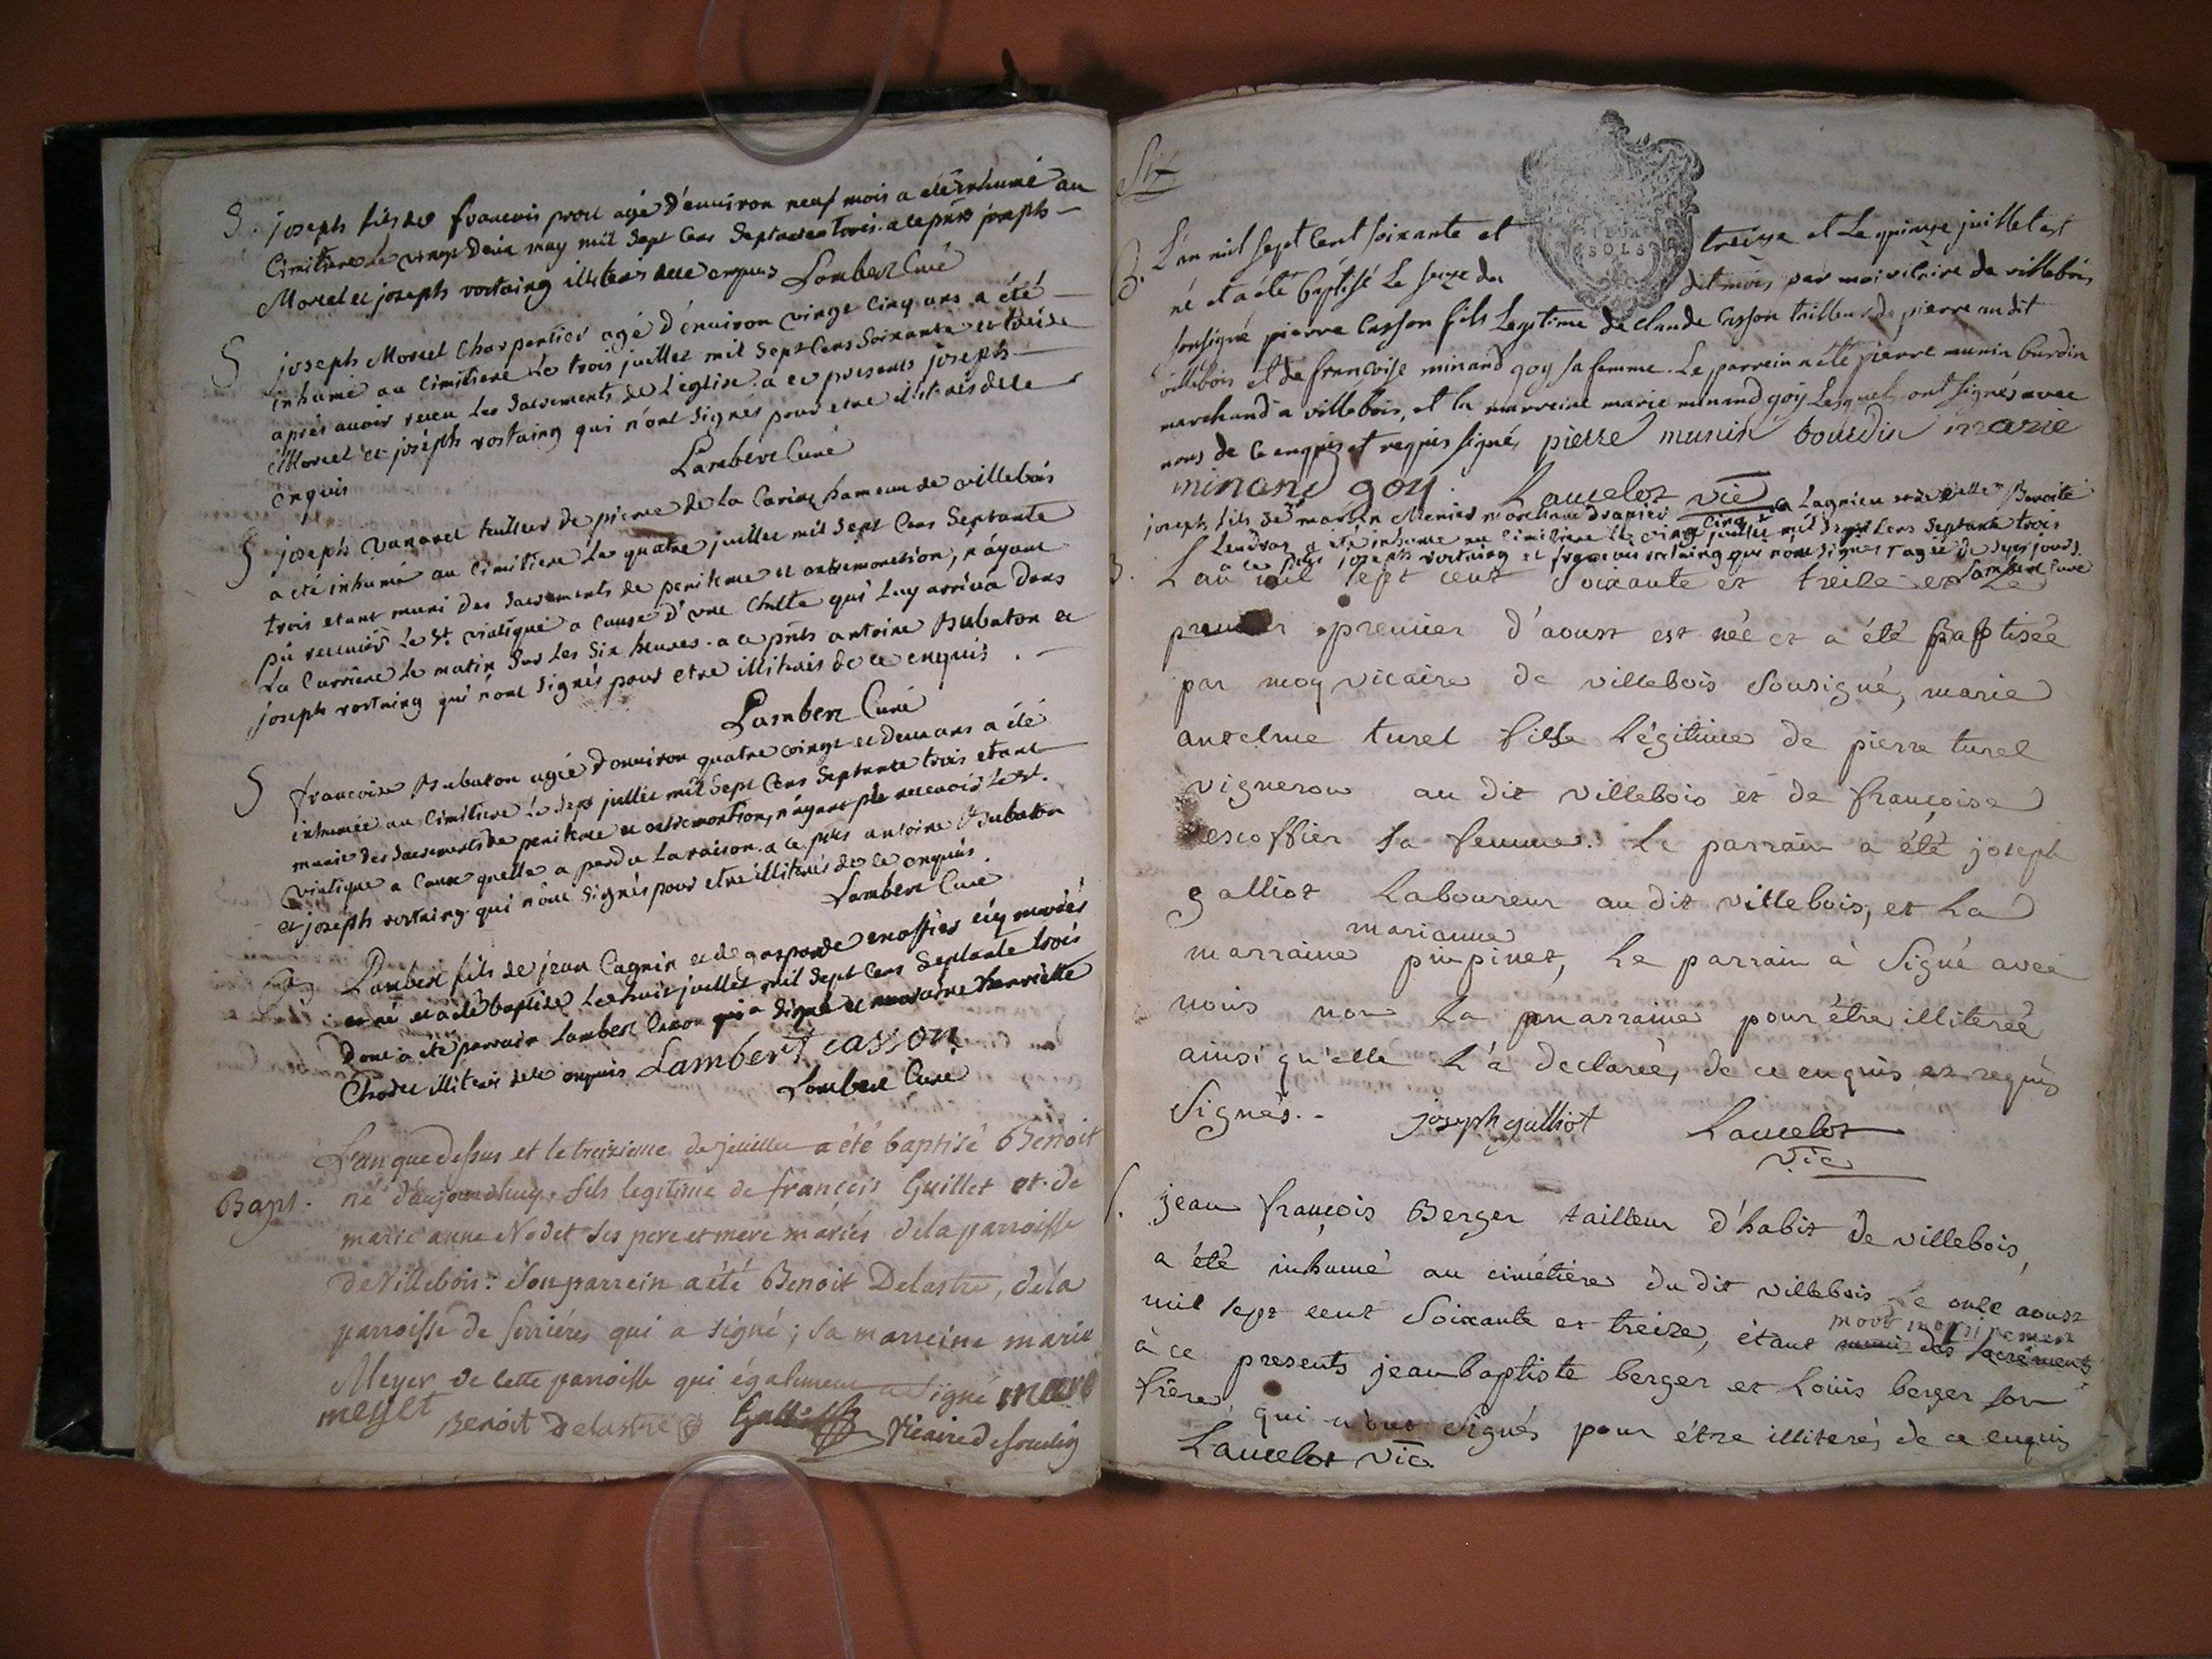 S. joseph fils de francois prou agé d'environ neuf mois a été inhumé au
Cimitiere le vingt deux may mil Sept Cens Septante trois. a ce prets joseph
Morel et joseph rostaing illiteres de ce enquis Lambert Curé
S joseph Morel Charpentier agé d'environ vingt Cinq ans a été
inhumé au Cimitiere le trois juillet mil Sept Cens Soixante et treize
après avoir receu les Sacrements de L'église. a ce presents joseph
Morel et joseph rostaing qui n'ont Signés pour etre illiterés de ce
enquis
Lambert Curé
S joseph Vanarel tailleur de pierre de la Carine hameau de villebois
a été inhumé au Cimitiere le quatre juillet mil Sept Cens Septante
trois etant muni des Sacrements de penitence et extremonction, n'ayant
pû recevoir le St. viatique a Cause d'une Chutte qui Luy arriva dans
La Carriere le matin Sur Les Six heures. a ce prets antoine Bubaton et
joseph rostaing qui n'ont Signés pour etre illiterés de ce enquis.
Lambert Curé
S francoise Bubaton agée d'environ quatre vingt et deux ans a été
inhumée au Cimitiere le Sept juillet mil Sept Cens Septante trois etant
munie des Sacrements de penitence et extremonction, n'ayant pû recevoir le St.
viatique a Cause quelle a perdu La raison. a ce prets antoine Bubaton
et joseph rostaing qui n'ont Signés pour etre illiterés de ce enquis.
Lambert Curé
Lambert fils de jean Cagnin et de gasparde escoffier cy mariés
est né et a été baptisé Le huit juillet mil Sept Cens Septante trois
dont a été parrain Lambert Casson qui a Signé et marraine henriette
Chodet illiterée de ce enquis Lambert casson
Lambert Curé
L'an que dessus et le treizieme de juillet a été baptisé Benoit
Bapt. né d'aujourdhuy, fils legitime de francois Guillet et de
marie anne Nodet ses pere et mere mariés de la parroisse
de Villebois: Son parrein a été Benoit Delastre, de la
parroisse de Serriéres qui a signé; sa marreine marie
Meyer de cette parroisse qui également a Signé mari
meyet Benoit Delastre Vicaire de Soudin
Six
B. L'an mil sept cent soixante et treize et Le quinze juillet est
né et a été baptisé Le seize du dit mois par moi vicaire de villebois
soussigné pierre Casson fils Legitime de claude Casson tailleur de pierre au dit
villebois et de francoise minand goy sa femme. Le parrein a été pierre munin burdin
marchand a villebois, et la marreine marie minand goy Lesquels ont signés avec
nous de ce enquis et requis signé, pierre munin bourdin marie
minand goy. Lancelot vic
joseph fils de martin Menier marchand drapier a Lagnieu et de Benoite
Lendros a été inhumé au Cimitiere le cinq juillet mil Sept Cens Septante trois
a ce prets joseph rostaing et francois rostaing qui n'ont Signés agé de Sept jours.
Lambert Curé
B. L'an mil sept cent Soixante et treize et Le
premier premier d'aoust est née et a été Baptisée
par moy vicaire de villebois Sousigné, marie
antelme turel fille Légitime de pierre turel
vigneron au dit villebois et de françoise
escoffier sa femme. Le parrain a été joseph
galliot Laboureur au dit villebois, et La
marianne
marraine pinpinet, Le parrain à Signé avec
nous non La marraine pour être illiterée
ainsi qu'elle L'a declarée, de ce enquis et requis
Signés. joseph galliot Lancelot
vic
S. jean françois Berger tailleur d'habit de villebois,
a été inhumé au cimétiére du dit villebois Le onze aoust
mil sept cent Soixante et treize, étant muni des Sacréments
mort
à ce presents jean baptiste berger et Loüis berger son
frère, qui n'ont Signés pour étre illiterés de ce enquis
Lancelot vic.